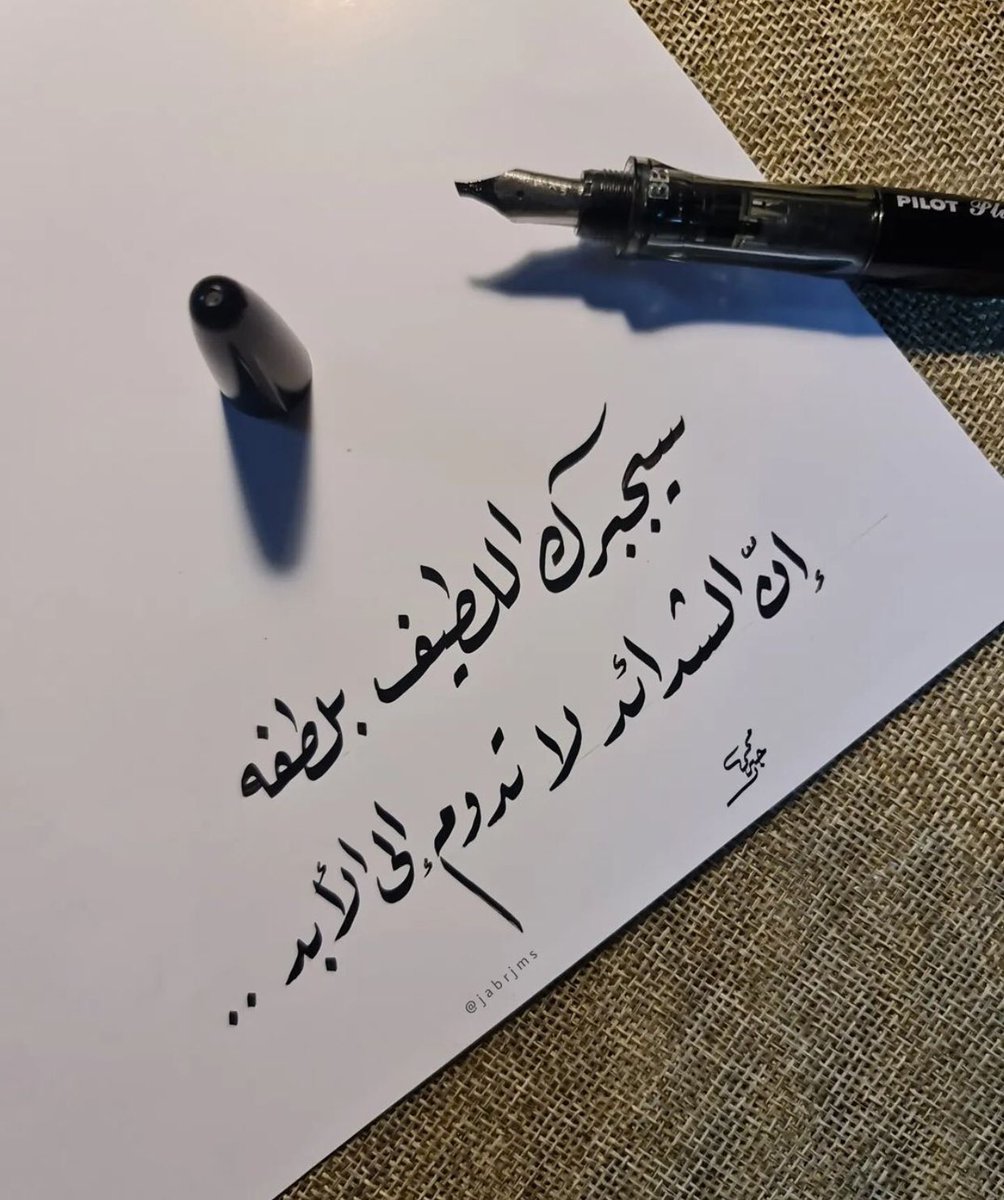 PILOT
سيجبرك اللطيف بلطفه
إنّ الشدائد لا تدوم إلى الأبد ..
@jabrjms